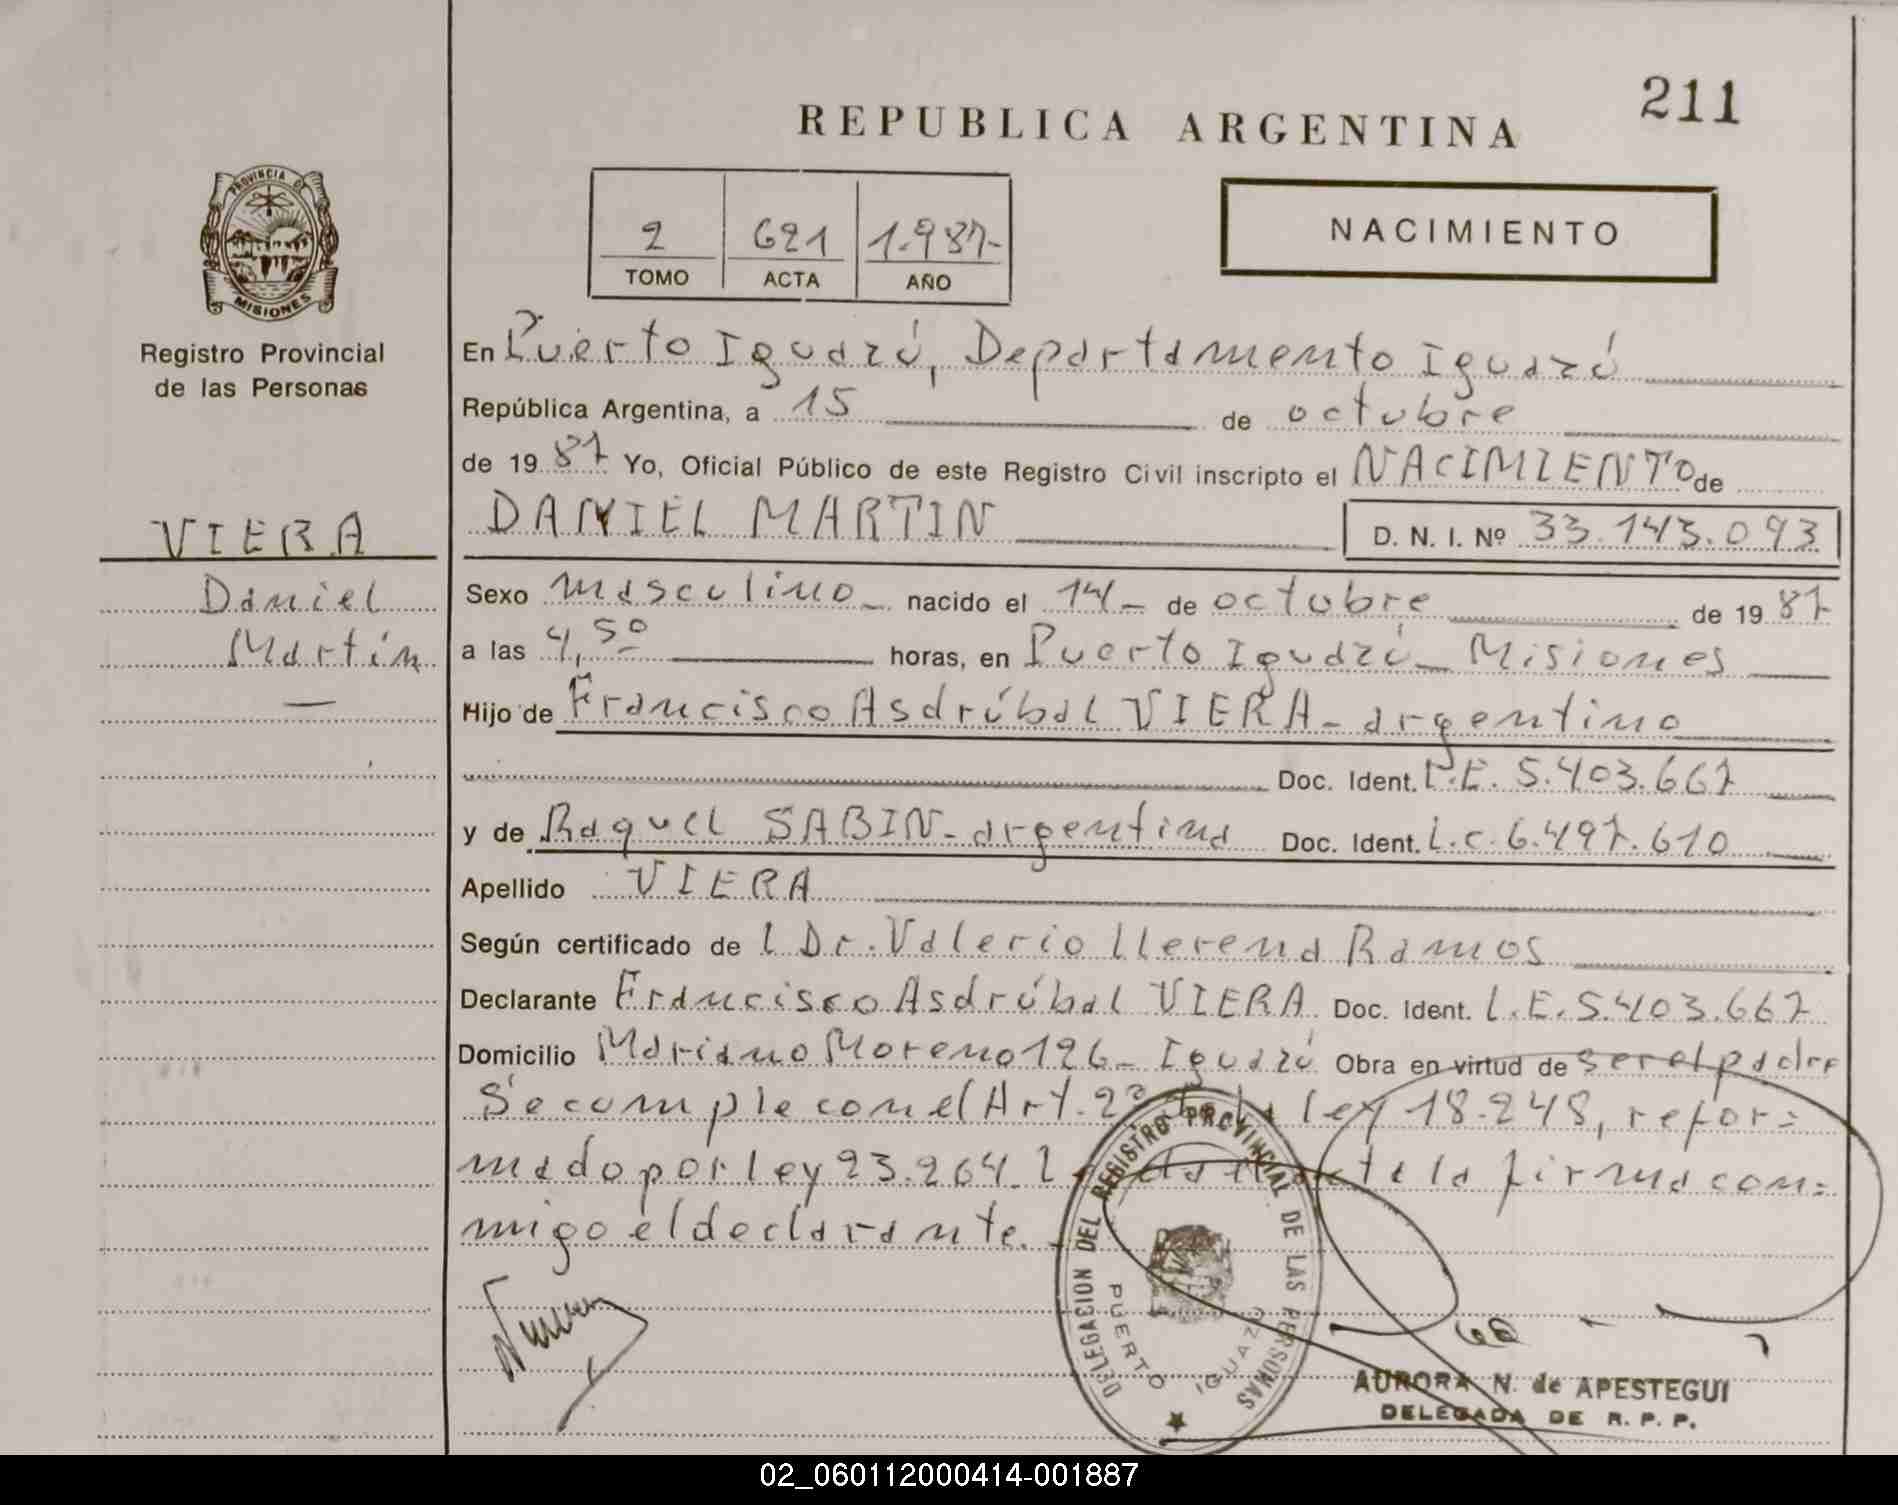 211
REPUBLICA ARGENTINA
NACIMIENTO
2 621 1.987-
TOMO ACTA AÑO
PROVINCIA DE MISIONES
Registro Provincial
de las Personas
VIERA
Daniel
Martín
—
En Puerto Iguazú, Departamento Iguazú
República Argentina, a 15 de octubre
de 1987 Yo, Oficial Público de este Registro Civil inscripto el NACIMIENTO de
DANIEL MARTIN D. N. I. Nº 33.143.093
Sexo masculino nacido el 14 de octubre de 1987
a las 4,50 horas, en Puerto Iguazú Misiones
Hijo de Francisco Asdrúbal VIERA - argentino
Doc. Ident. L.E. 5.403.667
y de Raquel SABIN - argentina Doc. Ident. L.C. 6.497.610
Apellido VIERA
Según certificado de l Dr. Valerio Llerena Ramos
Declarante Francisco Asdrúbal VIERA Doc. Ident. L.E. 5.403.667
Domicilio Mariano Moreno 126 - Iguazú Obra en virtud de ser el padre
Se cumple con el Art. 2º de la ley 18.248, refor=
mado por ley 23.264. L firma con=
migo el declarante.
DELEGACION DEL REGISTRO PROVINCIAL DE LAS PERSONAS
PUERTO IGUAZU
AURORA N. de APESTEGUI
DELEGADA DE R. P. P.
02_060112000414-001887